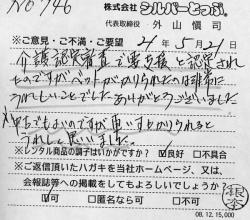 No 746
株式会社 シルバーとっぷ。
代表取締役 外山慎司
※ご意見・ご不満・ご要望 21年5月21日
介護認定審査で要支援と認定され
たのですがベットがかりられたのは非常に
うれしいことでした ありがとうございました。
いつでもよいのですが車いすがかりられると
うれしく思いました。
※レンタル商品の調子はいかがですか? ☑良好 □不具合
※ご返信頂いたハガキを当社ホームページ、又は、
会報誌等への掲載をしてもよろしいでしょうか?
☑可 □匿名なら可 □不可
08.12.15,000